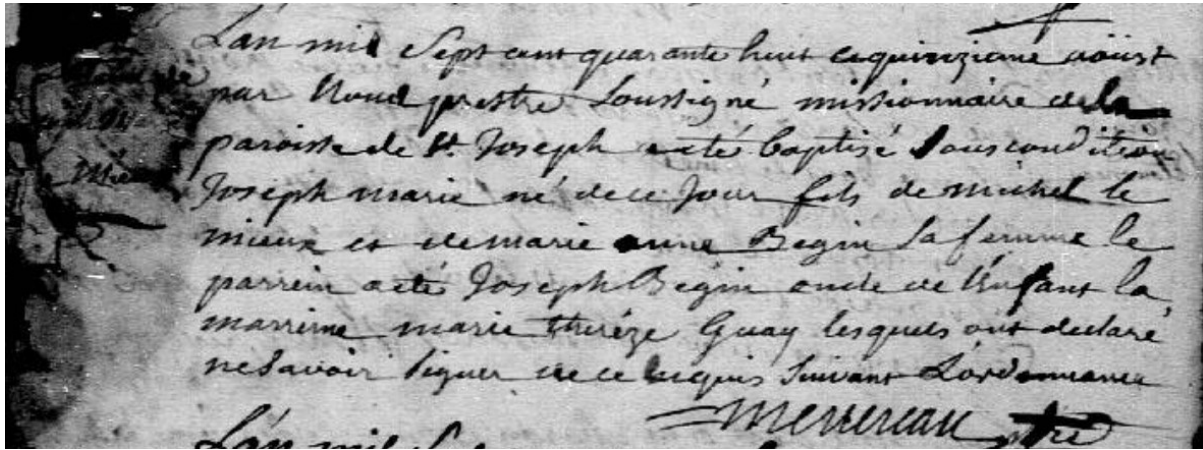 L'an mil Sept cent quarante huit ce quinzieme aoüst
par Nous prestre Soussigné missionnaire de la
paroisse de St. Joseph a eté baptisé sous condition
Joseph marie né de ce Jour fils de michel le
mieux et de marie anne Begin sa femme le
parrein a eté Joseph Begin oncle de l'enfant la
marreine marie therèze Guay lesquels ont declaré
ne savoir signer de ce requis suivant L'ordonnance
ptre
L'an mil